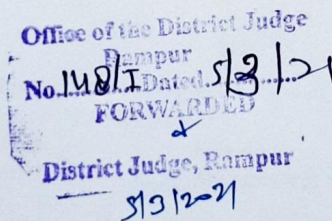 Office of the District Judge
Rampur
No. 148/I Dated. 5/3/21
FORWARDED
District Judge, Rampur
5/3/2021